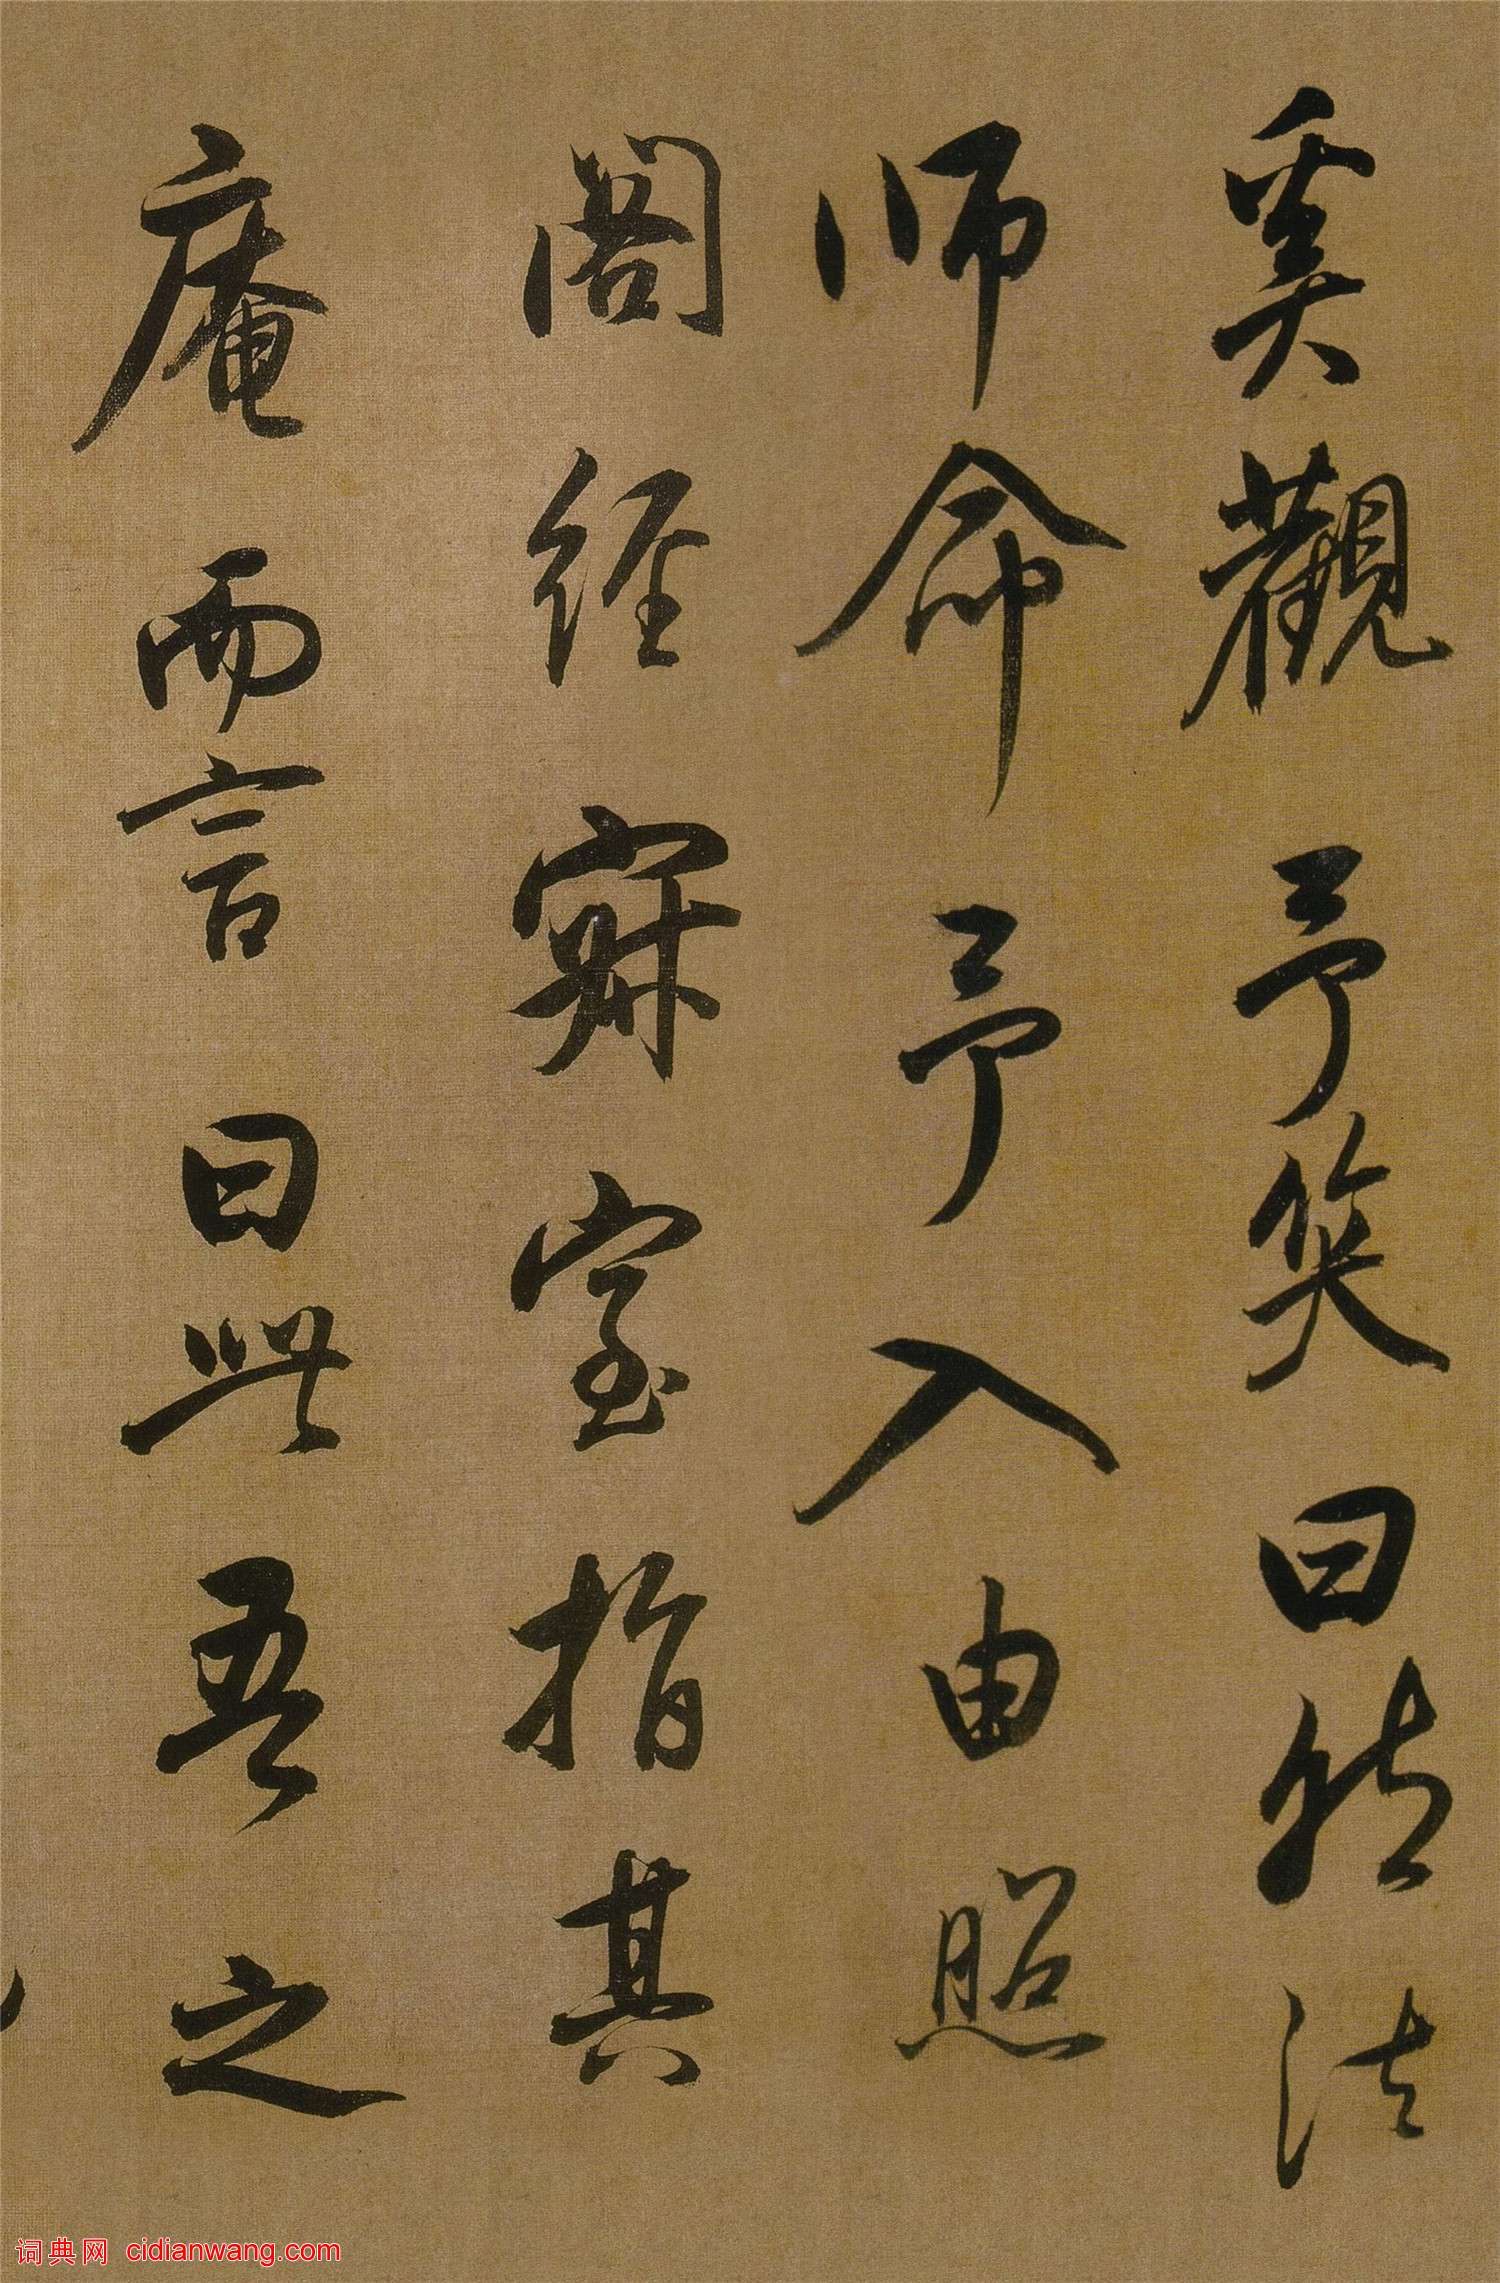 奚觀予笑曰然法
師命予入由照
閣經寂室指其
庵而言曰此吾之
词典网 cidianwang.com